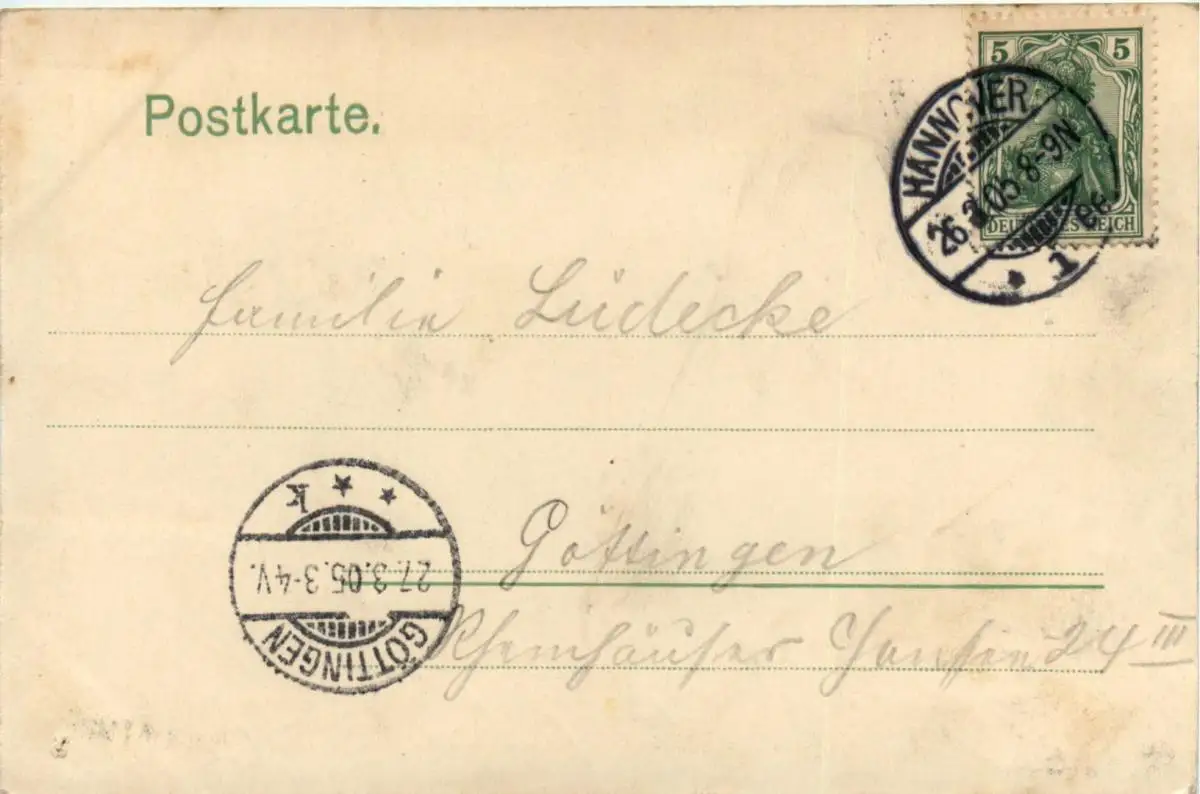 Postkarte.
5 5
DEUTSCHES REICH
HANNOVER
26.3.05 8-9N
1
Familie Lüdecke
Göttingen
24 III
k
27.3.05.3-4V.
GÖTTINGEN